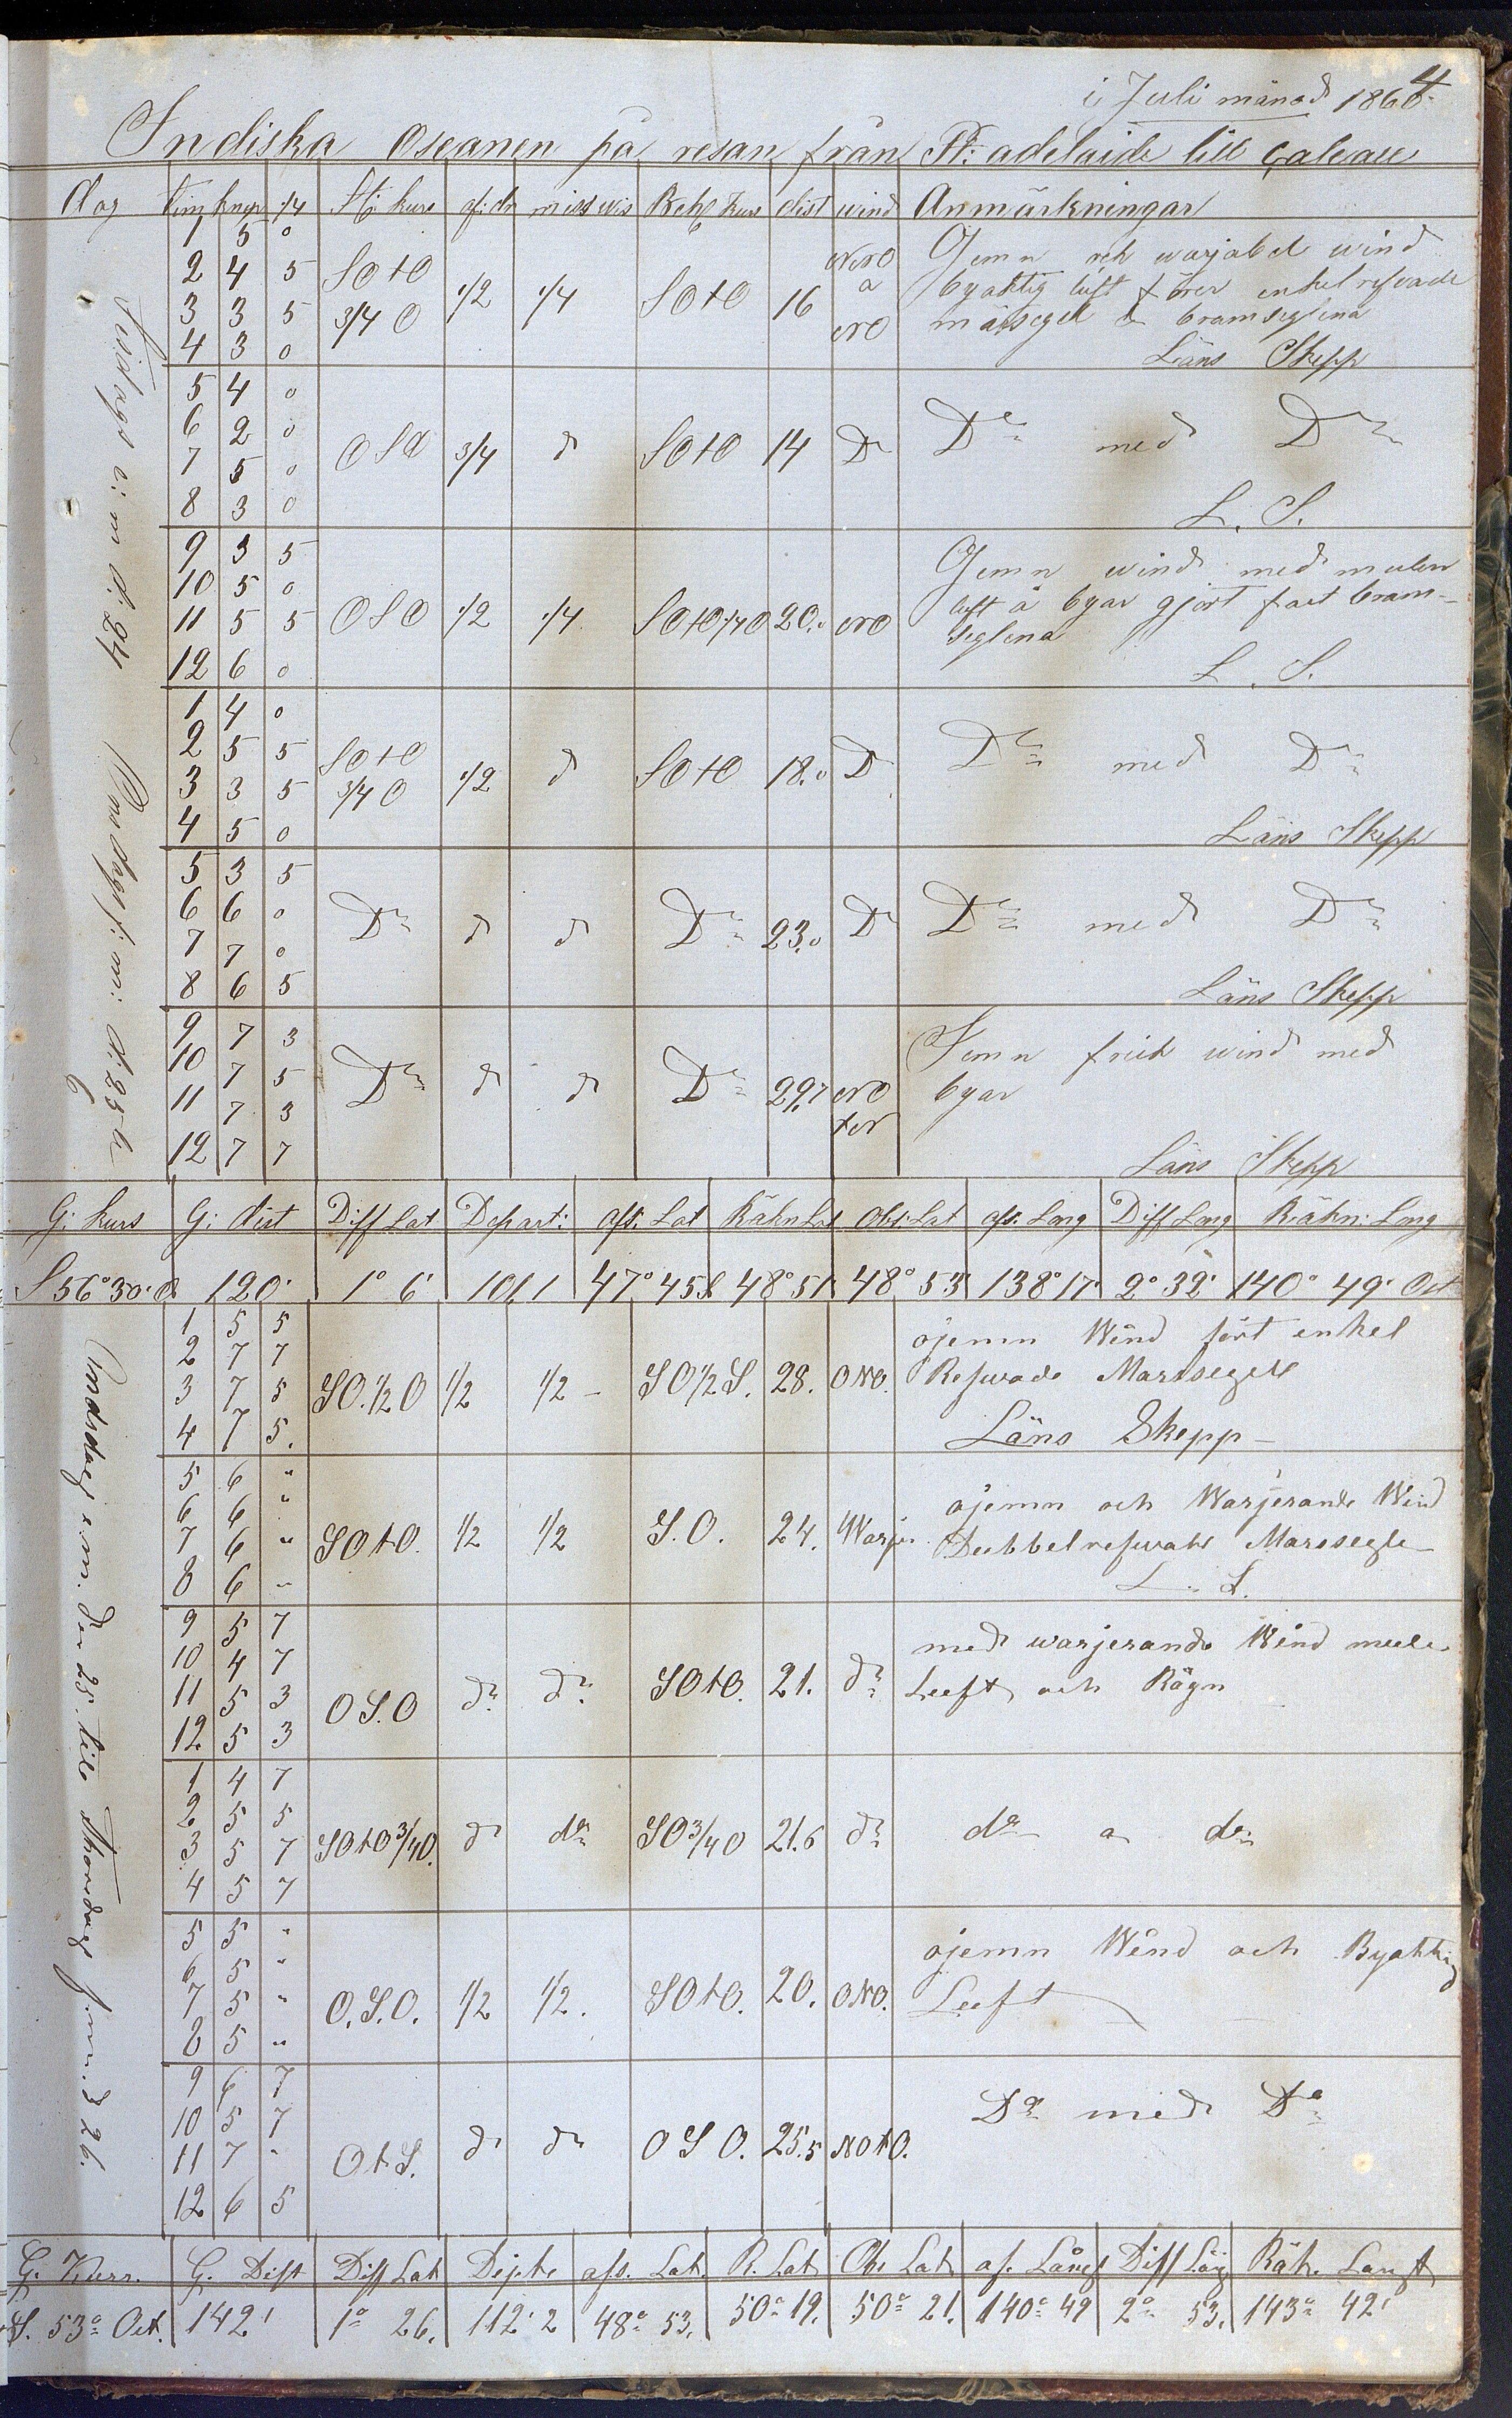 i Juli månad 1864.
Indiska Oseanen på resan från Pt: adelaide till
dag Tim knop 1/4 St: kurs af: dr missvis Beh: kurs dist wind Anmärkningar
Tisdags e: m d: 24 Onsdags f: m: d: 25
1 5 0
2 4 5
3 3 5
4 3 0
SOtO 3/4 O 1/2 1/4 SOtO 16
Jemn och warjabel wind
byaktig luft förer enkel refvade
märsegel & bramseglena
Läns Skepp
5 4 0
6 2 0
7 5 0
8 3 0
OSO 3/4 d SOtO 14 D
Do med Do
L. S.
9 3 5
10 5 0
11 5 5
12 6 0
OSO 1/2 1/4 SOtO 1/4 O 20.0
Jemn wind med mulen
luft å byar gjort fast bram-
seglena
L. S.
1 4 0
2 5 5
3 3 5
4 5 0
SOtO 3/4 O 1/2 d SOtO 18.0 D
Do med Do
Läns Skepp
5 3 5
6 6 0
7 7 0
8 6 5
Do d d Do 23.0 D
Do med Do
Läns Skepp
9 7 3
10 7 5
11 7 3
12 7 7
Do d d Do 29.7
Jemn frisk wind med
byar
Läns Skepp
G: kurs G: dist Diff Lat Depart: aff: Lat Räkn Lat Obs: Lat aff: Long Diff Long Räkn: Long
S 56° 30' O 120' 1° 6' 101,1 47° 45 S 48° 51 48° 53 138° 17' 2° 32' 140° 49' Ost
Onsdag e.m. den 25. till Thorsdag f.m. d 26.
1 5 5
2 7 7
3 7 5
4 7 5.
SO. 1/2 O 1/2 1/2 - SO 1/2 S. 28. ONO.
ojemn Wind fört enkel
Refwade Marssegel
Läns Skepp -
5 6 "
6 6 "
7 6 "
8 6 "
SOtO. 1/2 1/2 S.O. 24. Warje
ojemn och Warjerande Wind
Dubbelrefwade Marssegle
L. S.
9 5 7
10 4 7
11 5 3
12 5 3
OS.O do do SOtO. 21. do
med warjerande Wind mule
Luft och Rägn
1 4 7
2 5 5
3 5 7
4 5 7
SOtO 3/4 O. do do SO 3/4 O 21.6 do
do a do
5 5 "
6 5 "
7 5 "
8 5 "
O.S.O. 1/2 1/2. SOtO. 20. ONO.
ojemn Wind och Byaktig
Luft
9 6 7
10 5 7
11 7 "
12 6 5
OtS. do do OSO. 25.5 NOtO.
Do med Do
G. Kurs. G. Dist Diff Lat Depte afs. Lat. R. Lat Obs Lat af. Lång Diff Lång Räk. Lang
S. 53° Ost. 142' 1° 26. 112' 2 48° 53. 50° 19. 50° 21. 140° 49 2° 53. 143° 42'